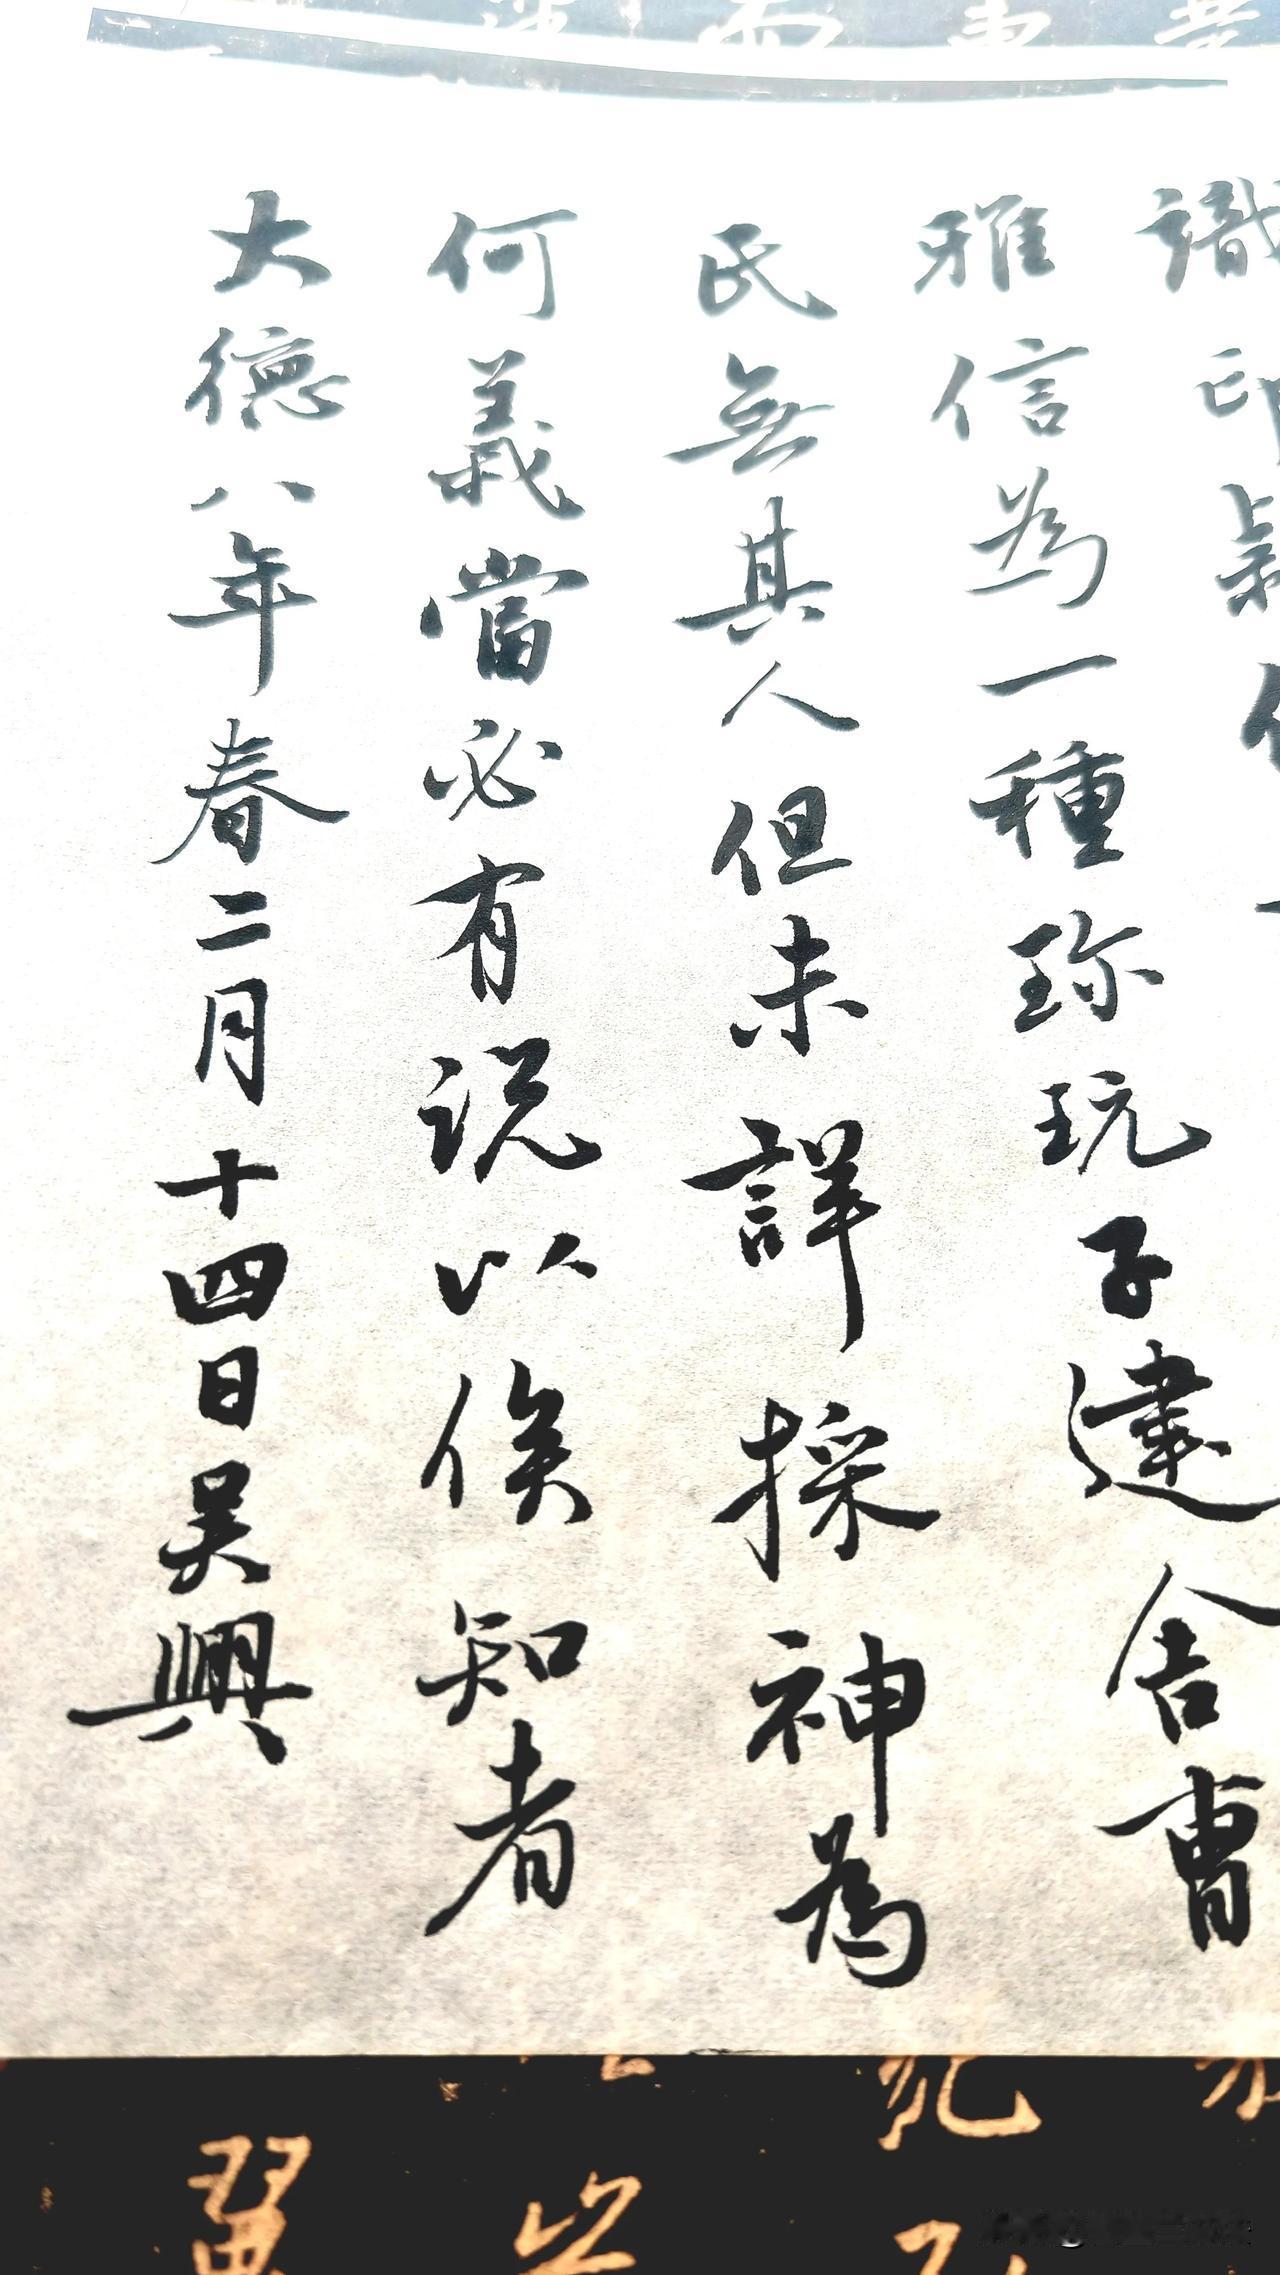 識印
雅信為一種珎玩子達舍曹
氏無其人但未詳採神為
何義當必有說以俟知者
大德八年春二月十四日吴興